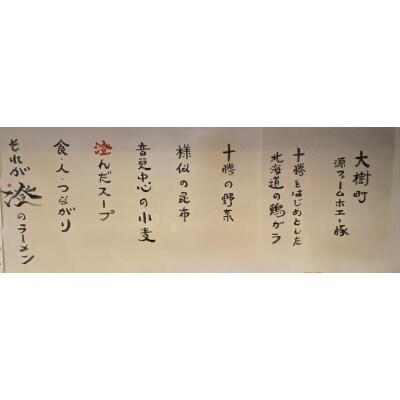 大樹町
源ファームホエー豚
十勝をはじめとした
北海道の鶏ガラ
十勝の野菜
様似の昆布
音更中心の小麦
澄んだスープ
食・人・つながり
それが澄のラーメン